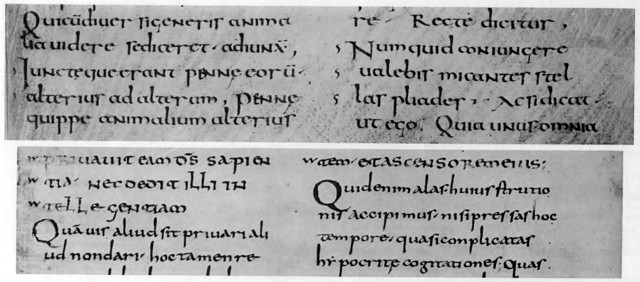 Quicū diuersi generis anima
lia uidere se diceret · adiunā,
Iuncteque erant pennę eorū·
alterius ad alterum, Pennę
quippe animalium alterius
re · Recte dicitur,
Numquid coniungere
ualebis micantes stel
las pliades, · Ac si dicat·
ut ego. Quia unus omnia
priuauit eam d̄s sapien
tia · nec dedit illi in
tellegentiam
Quāuis aliud sit priuari ali
ud non dari · hoc tamen re
tem · et ascensorem eius:
Quid enim alas huius strutio
nis accipimus · nisi pressas hoc
tempore · quasi conplicatas
hẏpocritę cogitationes; Quas